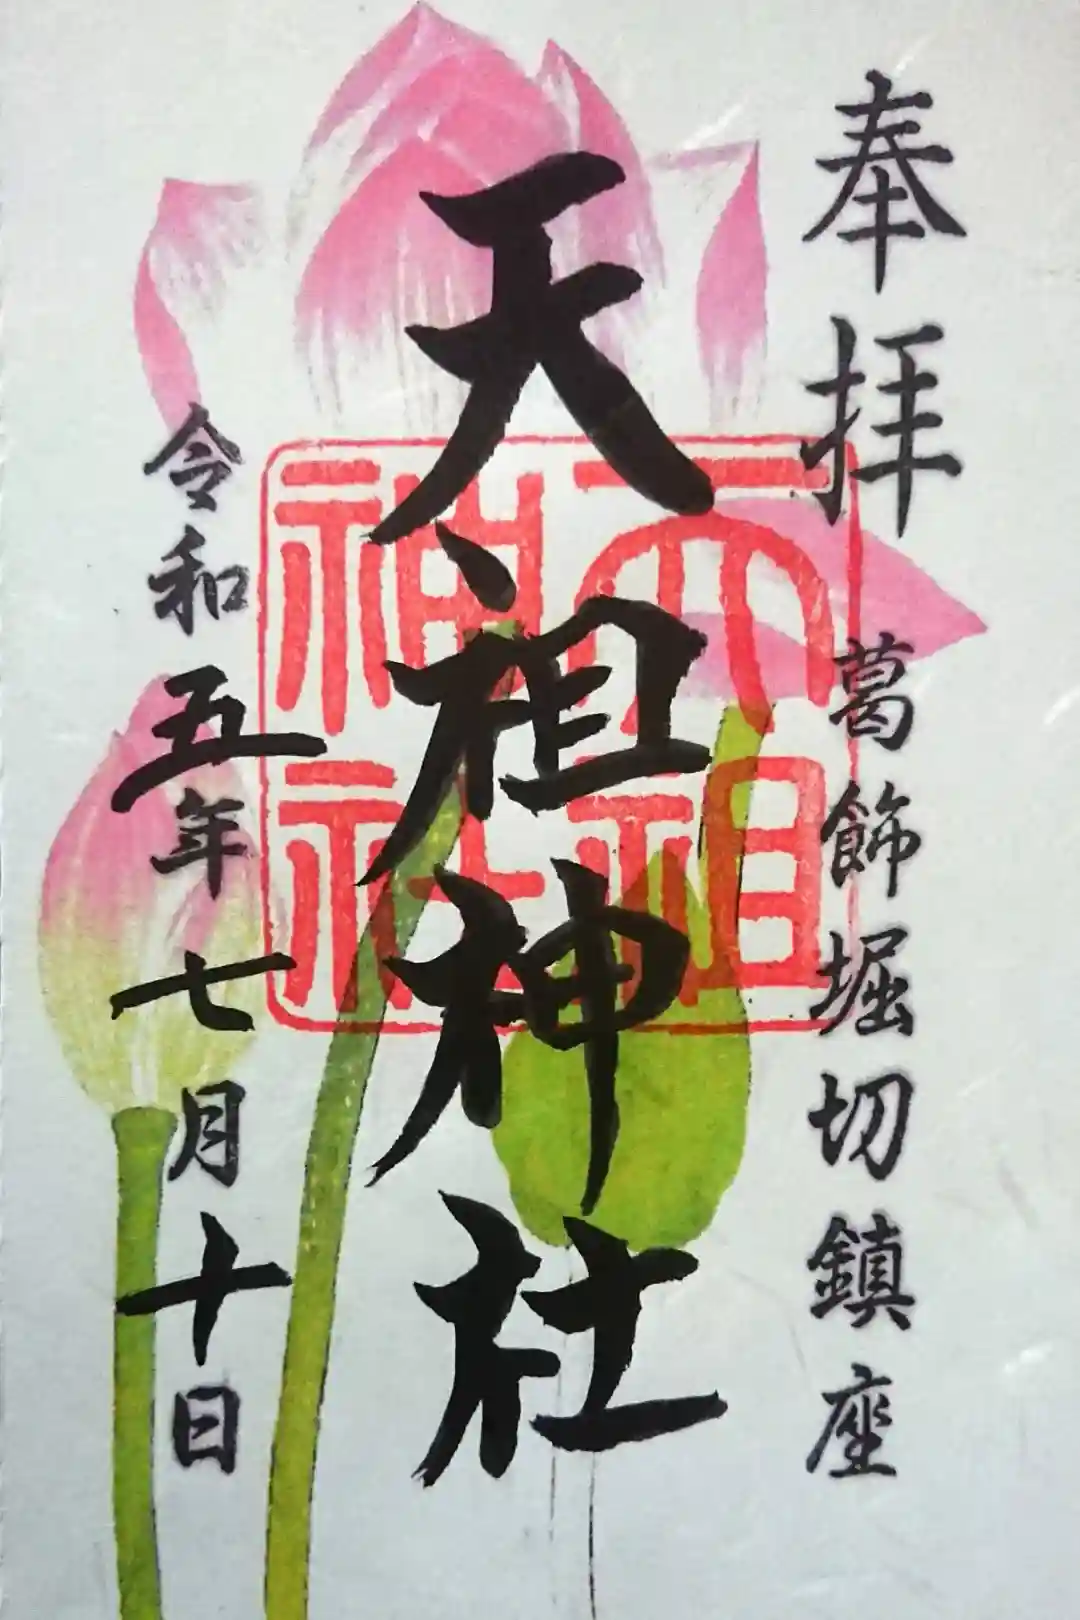 奉拝
葛飾堀切鎮座
天祖神社
天祖
神社
令和五年七月十日